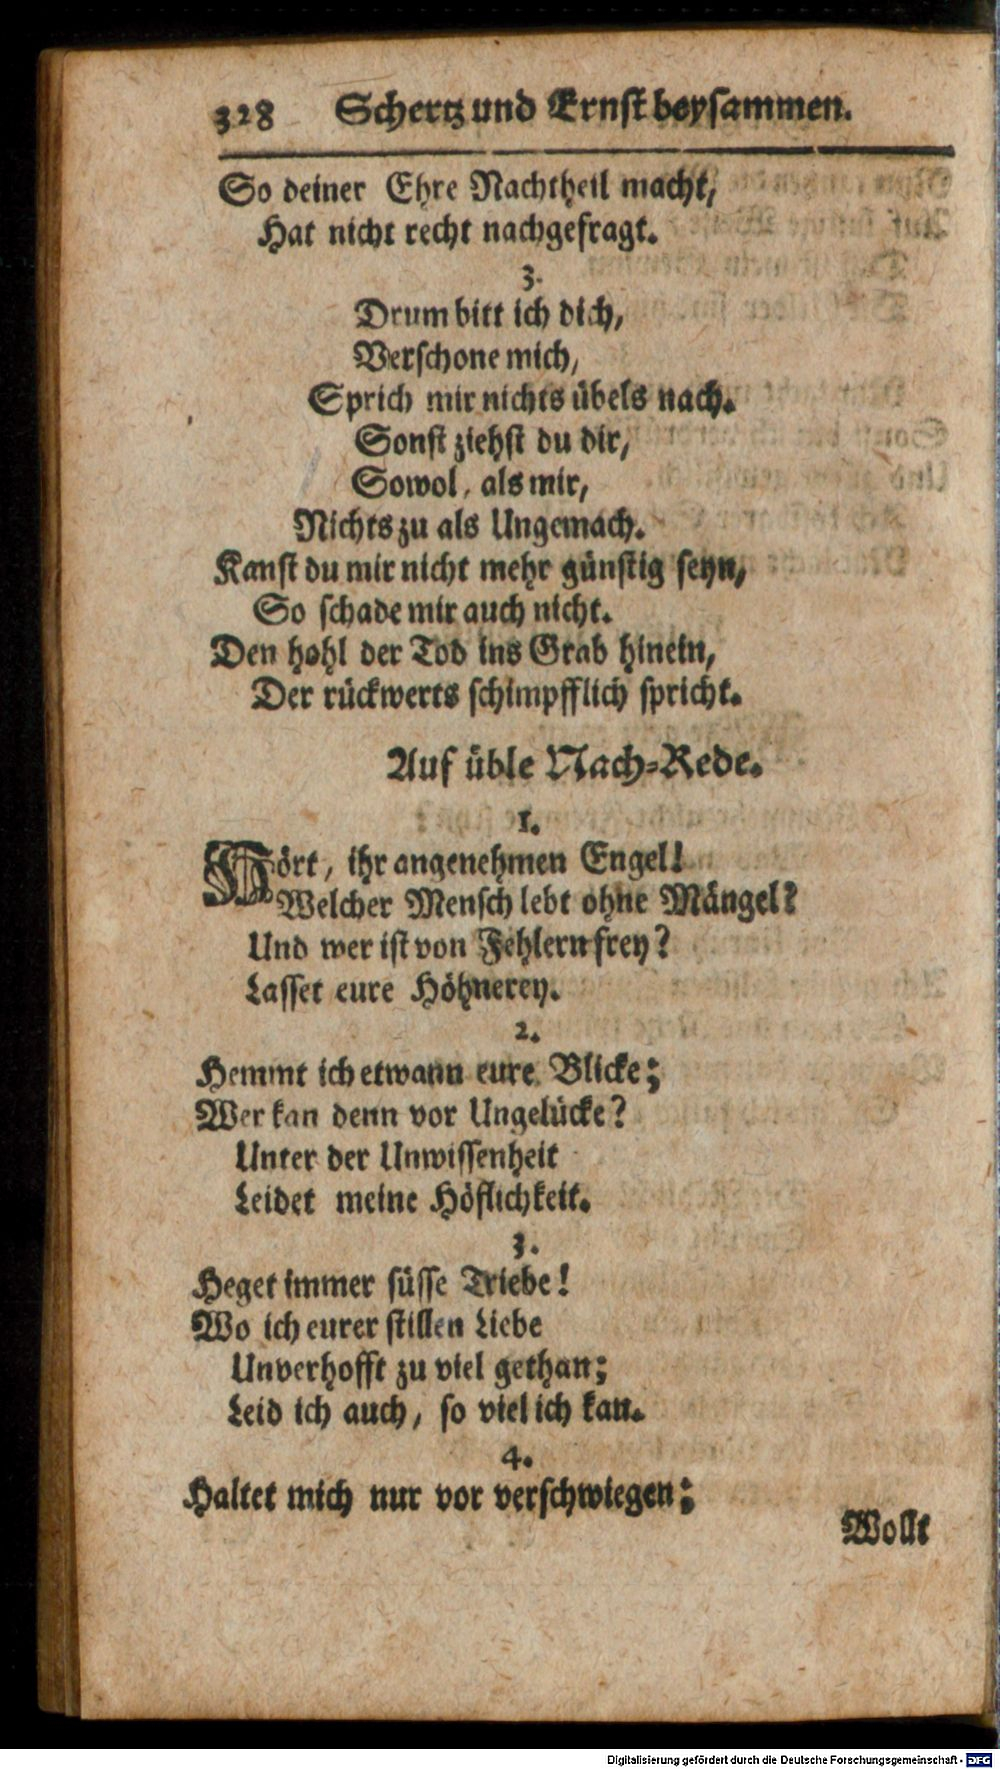 328 Schertz und Ernst beysammen.
So deiner Ehre Nachtheil macht,
Hat nicht recht nachgefragt.
3.
Drum bitt ich dich,
Verschone mich,
Sprich mir nichts übels nach.
Sonst ziehst du dir,
Sowol, als mir,
Nichts zu als Ungemach.
Kanst du mir nicht mehr günstig seyn,
So schade mir auch nicht.
Den hohl der Tod ins Grab hinein,
Der rückwerts schimpfflich spricht.
Auf üble Nach-Rede.
1.
Hört, ihr angenehmen Engel!
Welcher Mensch lebt ohne Mängel?
Und wer ist von Fehlern frey?
Lasset eure Höhnerey.
2.
Hemmt ich etwann eure Blicke;
Wer kan denn vor Ungelücke?
Unter der Unwissenheit
Leidet meine Höflichkeit.
3.
Heget immer süsse Triebe!
Wo ich eurer stillen Liebe
Unverhofft zu viel gethan;
Leid ich auch, so viel ich kan.
4.
Haltet mich nur vor verschwiegen;
Wollt
Digitalisierung gefördert durch die Deutsche Forschungsgemeinschaft - DFG